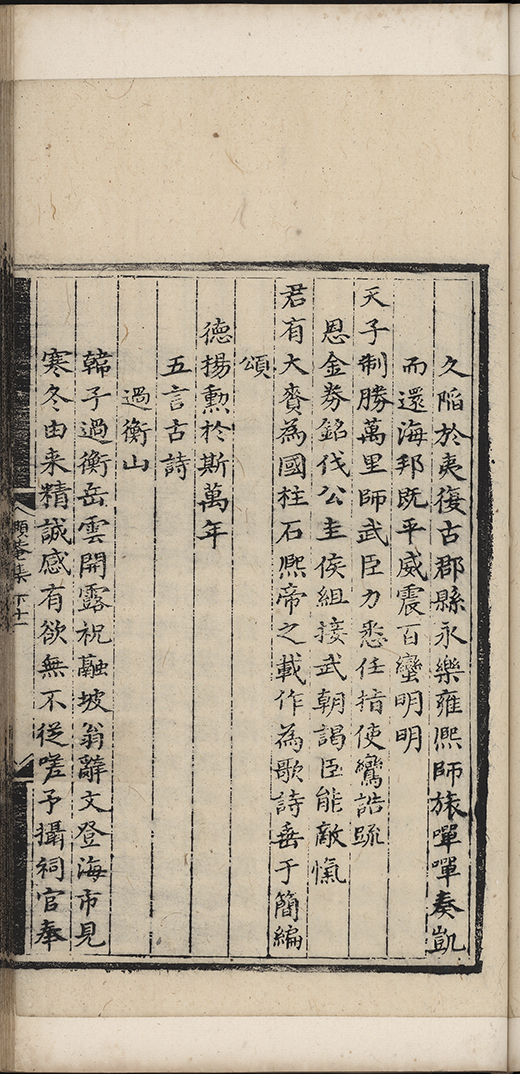 久陷於夷復古郡縣永樂雍熙師旅嘽嘽奏凱
而還海邦既平威震百蠻明明
天子制勝萬里師武臣力悉任指使鸞誥疏
恩金券銘伐公圭侯組接武朝謁臣能敵愾
君有大賚為國柱石熙帝之載作為歌詩垂于簡編
頌
德揚勲於斯萬年
五言古詩
過衡山
韓子過衡岳雲開露祝融坡翁辭文登海市見
寒冬由来精誠感有欲無不從嗟予攝祠官奉
頤菴集 下 十一